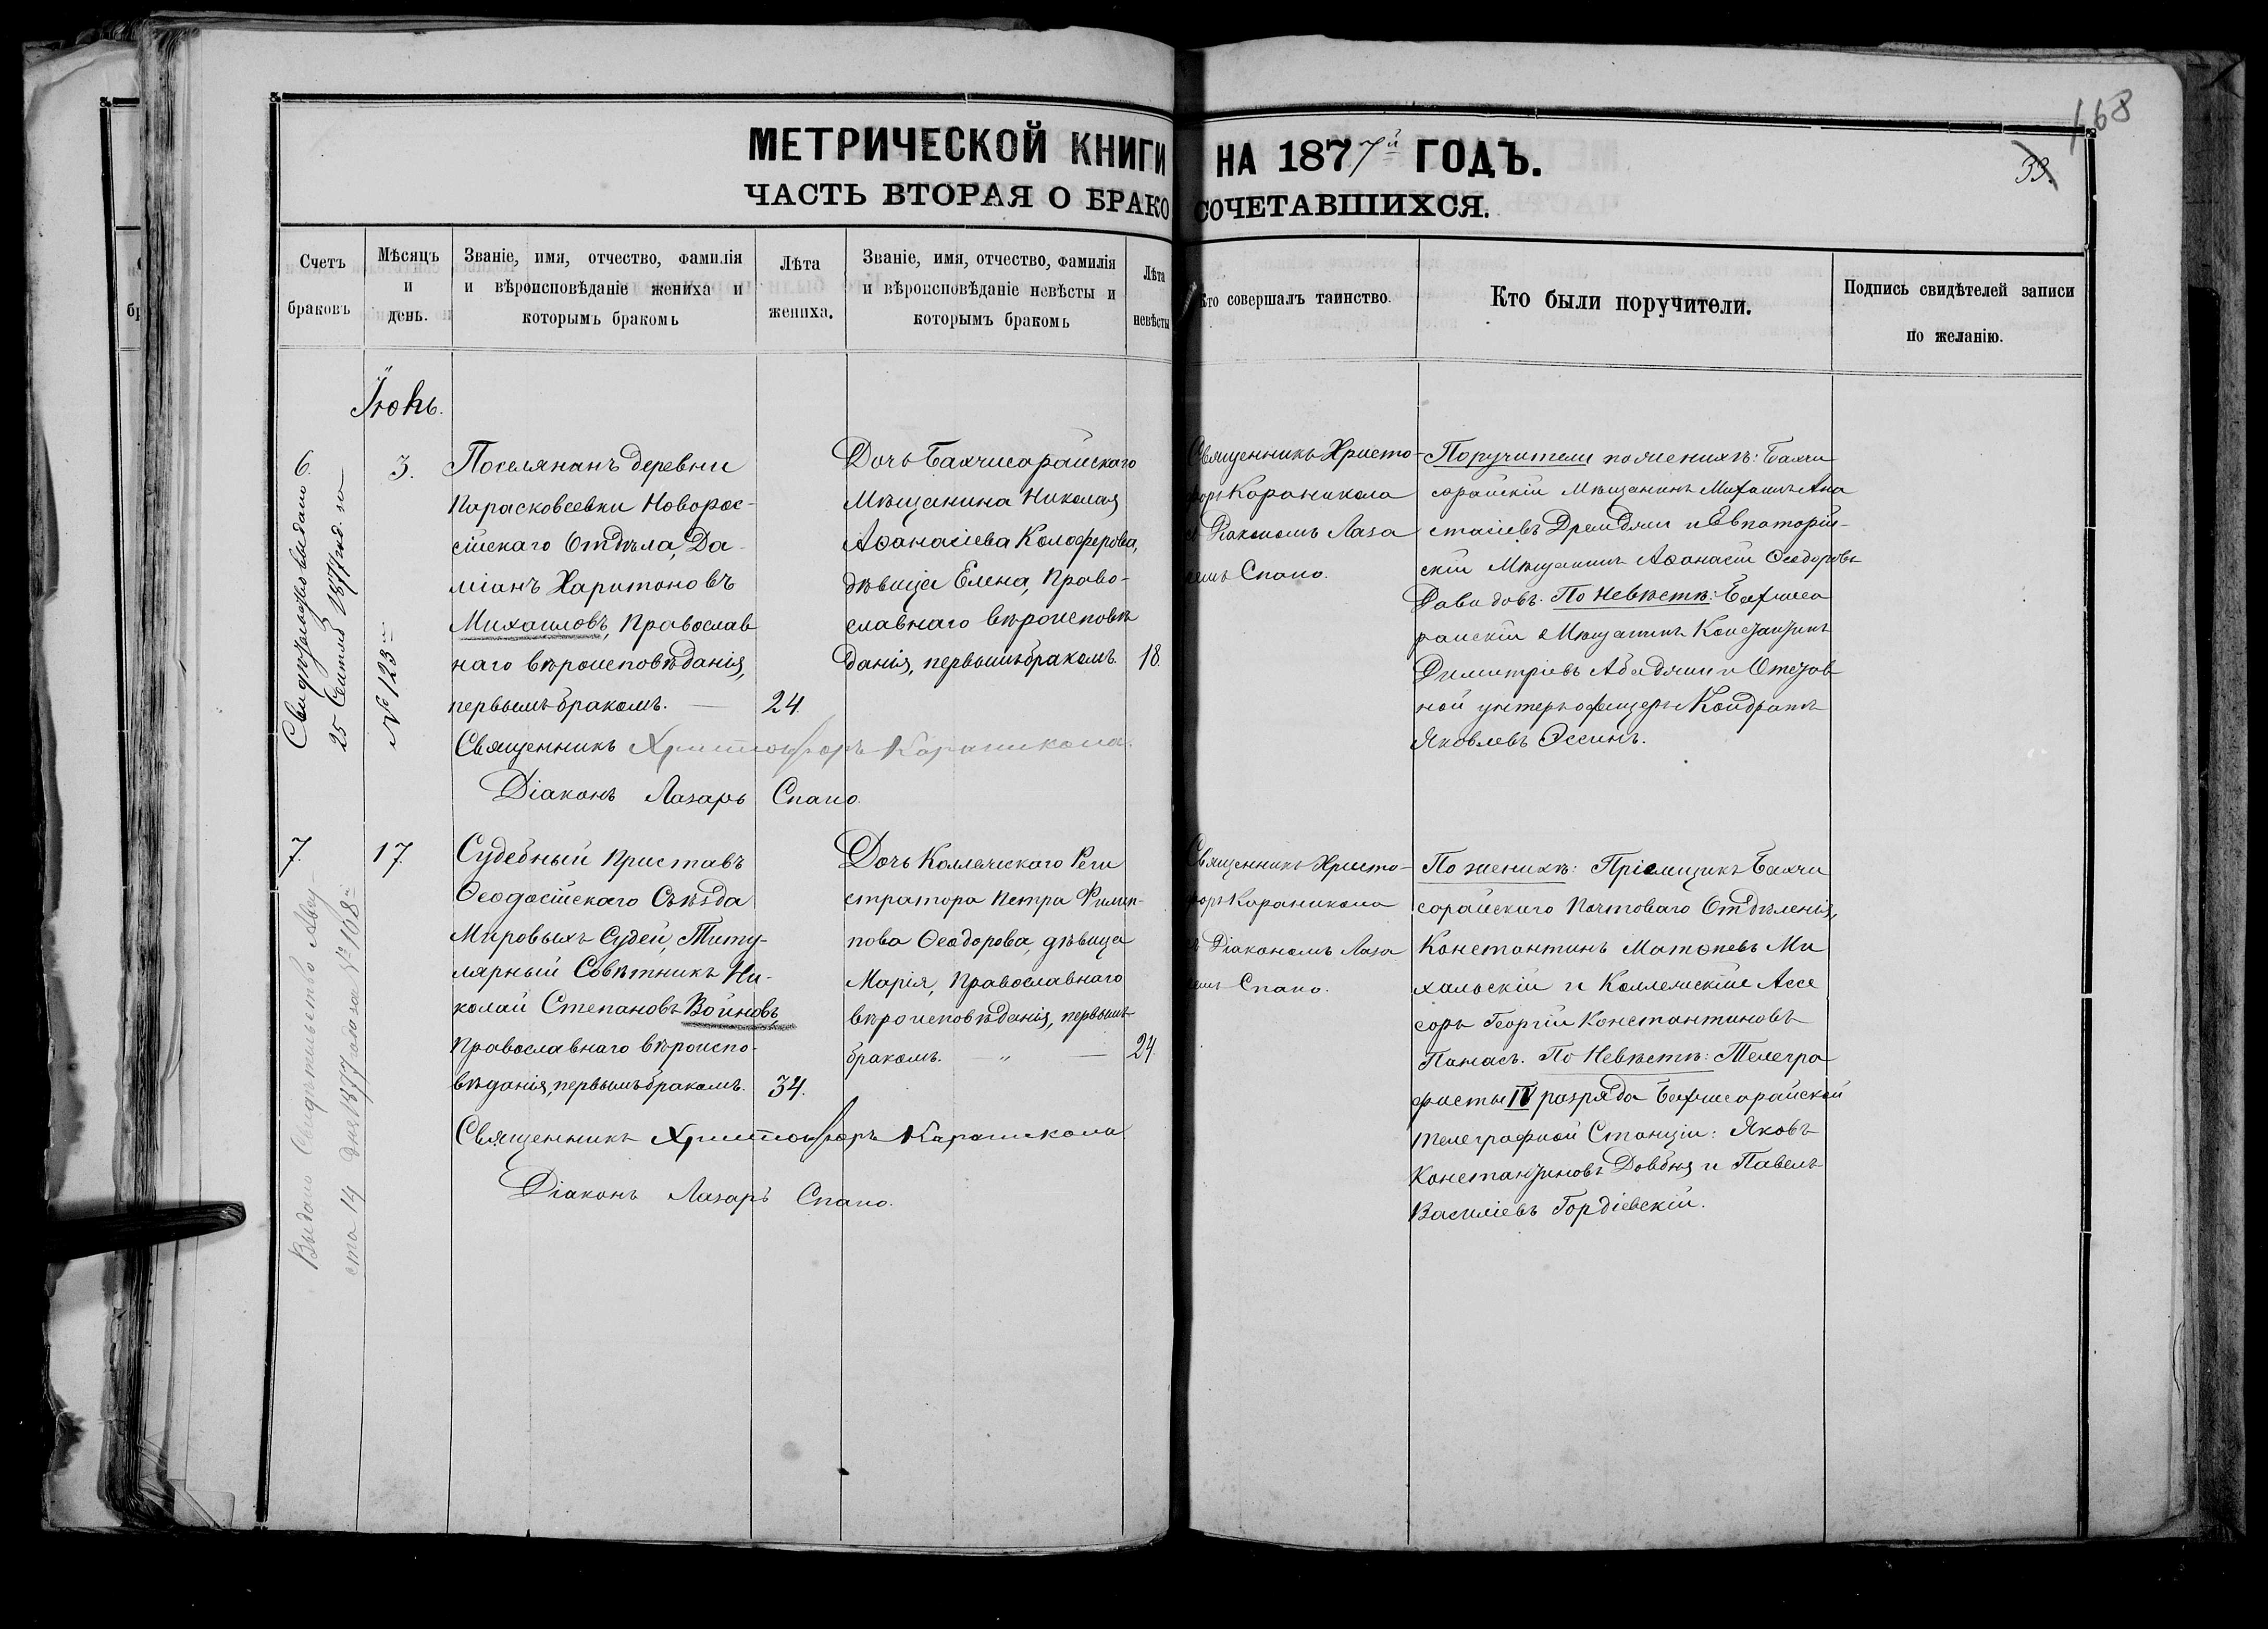 168
39.
МЕТРИЧЕСКОЙ КНИГИ НА 1877й ГОДЪ.
ЧАСТЬ ВТОРАЯ О БРАКОСОЧЕТАВШИХСЯ.
Счетъ
браковъ
Мѣсяцъ
и
день.
Званіе, имя, отчество, фамилія
и вѣроисповѣданіе жениха и
которымъ бракомъ
Лѣта
жениха.
Званіе, имя, отчество, фамилія
и вѣроисповѣданіе невѣсты и
которымъ бракомъ
Лѣта
невѣсты
Кто совершалъ таинство.
Кто были поручители.
Подпись свидѣтелей записи
по желанію.
Іюнь.
6.
Свидѣтельство выдано
25 Сентяб 1877 год. за
№ 123
3.
Поселянинъ деревни
Парасковеевки Новорос-
сійскаго Отдѣла, Да-
міанъ Харитоновъ
Михаиловъ, Православ
наго вѣроисповѣданія,
первымъ бракомъ.
24.
Дочь Бахчисарайскаго
Мѣщанина Николая
Аѳанасіева Колоферова,
дѣвица Елена, Право-
славнаго вѣроисповѣ
данія, первымъ бракомъ.
18.
Священникъ Христофоръ Караникола
Діаконъ Лазарь Спано.
Священникъ Христо-
форъ Караникола
съ Діакономъ Лаза
ремъ Спано.
Поручители по женихѣ: Бахчи
сарайскій Мѣщанинъ Михаилъ Ана
стасіевъ и Евпаторій-
скій Мѣщанинъ Аѳанасій Ѳеодоровъ
Давидовъ. По Невѣстѣ: Бахчиса
райскій Мѣщанинъ Константинъ
Димитріевъ и Отстав
ной унтеръ офицеръ Кондратъ
Яковлевъ Эссинъ.
7.
Выдано Свидѣтельство Авгу-
ста 14 дня 1877 года за № 108
17
Судебный Приставъ
Ѳеодосійскаго Съѣзда
Мировыхъ Судей, Титу-
лярный Совѣтникъ Ни-
колай Степановъ Войновъ,
Православнаго вѣроиспо-
вѣданія, первымъ бракомъ.
34.
Дочь Коллежскаго Реги
стратора Петра Филип-
пова Ѳеодорова, дѣвица
Марія, Православнаго
вѣроисповѣданія, первымъ
бракомъ. — „ —
24.
Священникъ Христофоръ Караникола
Діаконъ Лазарь Спано.
Священникъ Христо-
форъ Караникола
съ Діакономъ Лаза
ремъ Спано.
По женихѣ: Пріемщикъ Бахчи
сарайскаго Почтоваго Отдѣленія,
Константинъ Матѳіевъ Ми
хальскій и Коллежскій Ассе
соръ Георгій Константиновъ
Панасъ. По Невѣстѣ: Телегра
фисты IV разряда Бахчисарайской
телеграфной Станціи: Яковъ
Константиновъ Довбня и Павелъ
Василіевъ Гордіевскій.